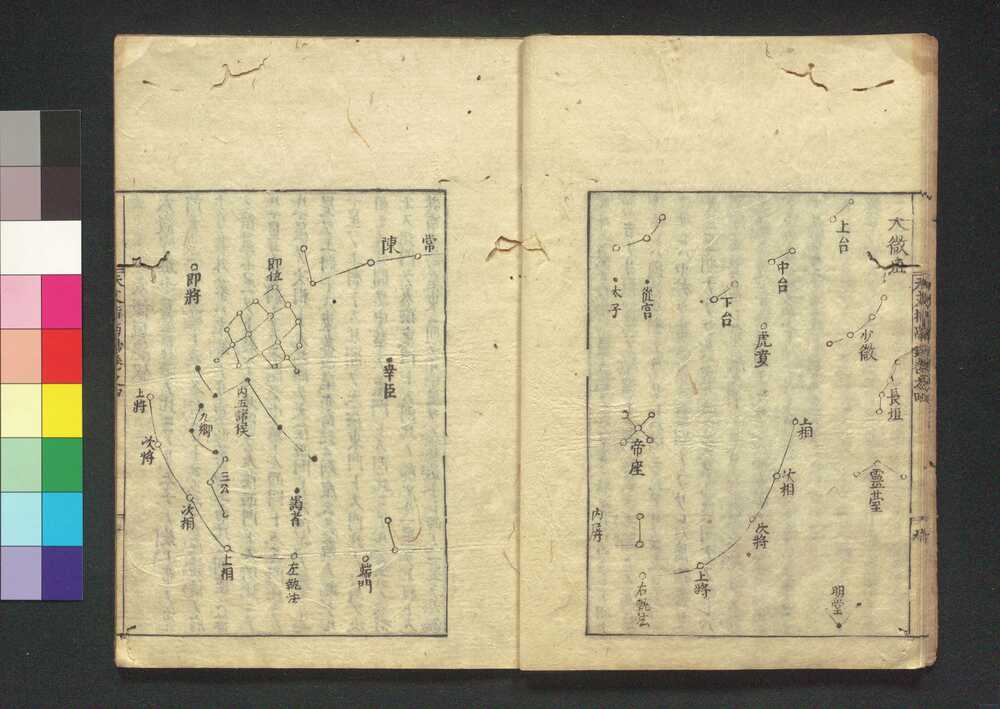 上台
中台
下台
少微
長垣
虎賁
從官
太子
帝座
上相
次相
次將
上將
靈臺
明堂
内屏
右執法
常
陳
幸臣
即位
即將
内五諸侯
九卿
三公
謁者
上將
次將
次相
上相
左執法
端門